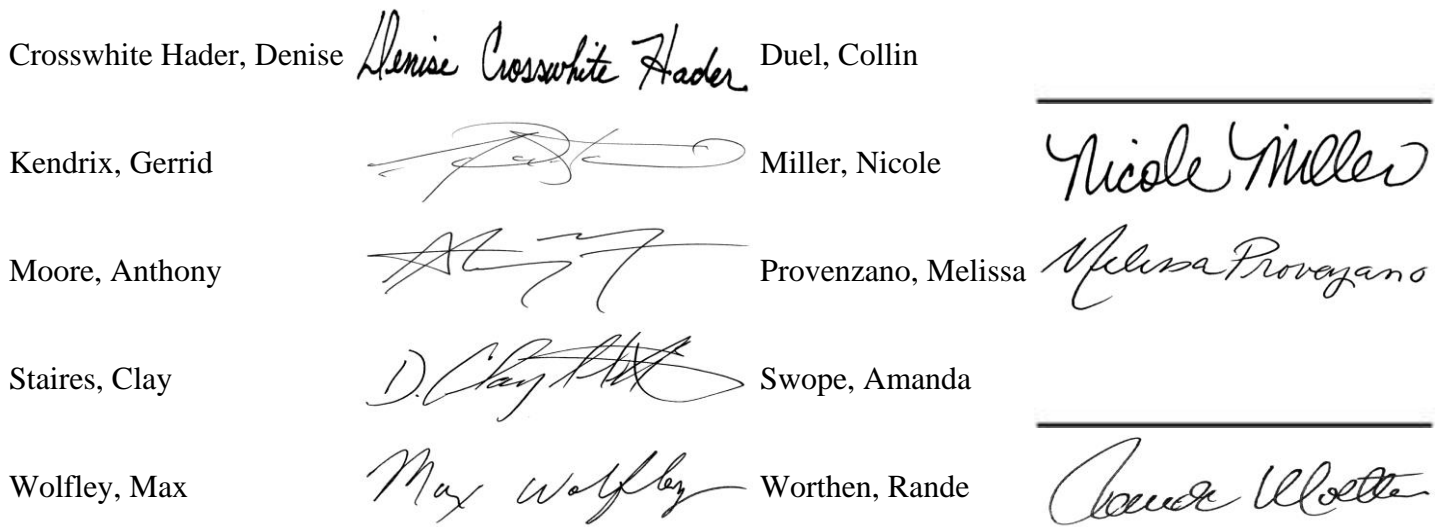 Crosswhite Hader, Denise Denise Crosswhite Hader Duel, Collin
Kendrix, Gerrid Miller, Nicole Nicole Miller
Moore, Anthony Provenzano, Melissa Melissa Provenzano
Staires, Clay D. Clay Swope, Amanda
Wolfley, Max Max Wolfley Worthen, Rande